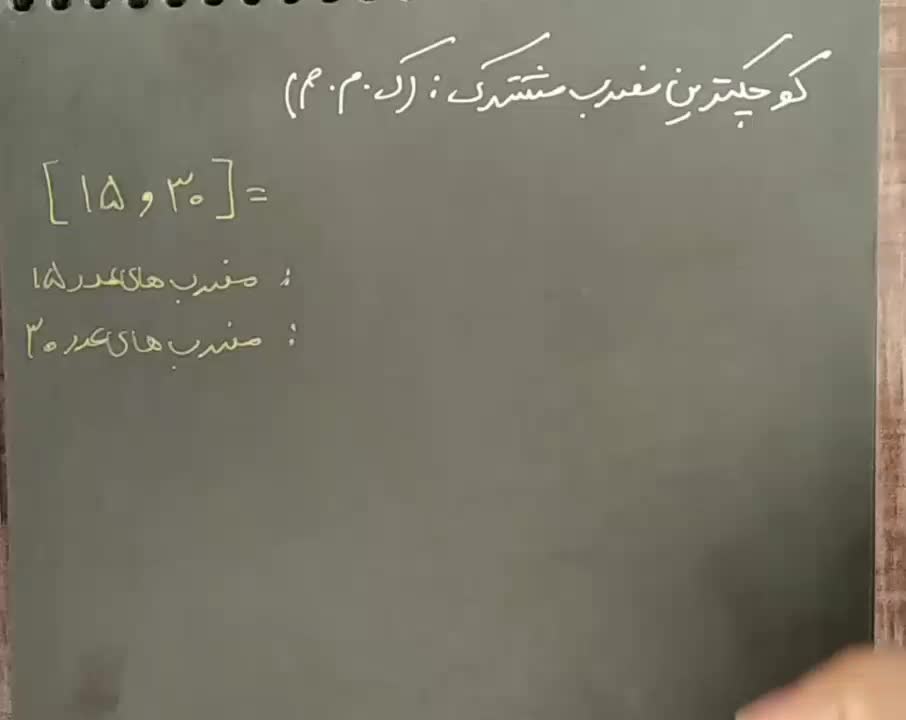 کوچکترین مضرب مشترک : (ک.م.م)
[۱۵ و ۳۰] =
مضرب های عدد ۱۵ :
مضرب های عدد ۳۰ :